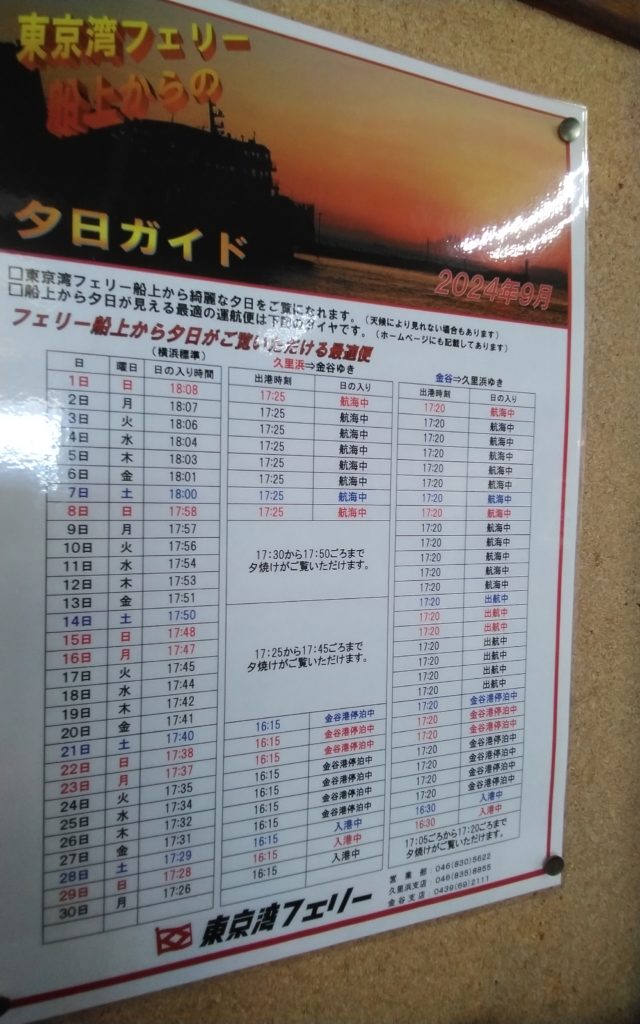 東京湾フェリー
船上からの
夕日ガイド
2024年9月
□東京湾フェリー船上から綺麗な夕日をご覧になれます。(天候により見れない場合もあります)
□船上から夕日が見える最適の運航便は下記のダイヤです。(ホームページにも記載してあります)
フェリー船上から夕日がご覧いただける最適便
(横浜標準) 久里浜⇒金谷ゆき 金谷⇒久里浜ゆき
日 曜日 日の入り時間 出港時刻 日の入り 出港時刻 日の入り
1日 日 18:08 17:25 航海中 17:20 航海中
2日 月 18:07 17:25 航海中 17:20 航海中
3日 火 18:06 17:25 航海中 17:20 航海中
4日 水 18:04 17:25 航海中 17:20 航海中
5日 木 18:03 17:25 航海中 17:20 航海中
6日 金 18:01 17:25 航海中 17:20 航海中
7日 土 18:00 17:25 航海中 17:20 航海中
8日 日 17:58 17:25 航海中 17:20 航海中
9日 月 17:57 17:20 航海中
10日 火 17:56 17:20 航海中
17:30から17:50ごろまで
夕焼けがご覧いただけます。
11日 水 17:54 17:20 航海中
12日 木 17:53 17:20 航海中
13日 金 17:51 17:20 航海中
14日 土 17:50 17:20 出航中
15日 日 17:48 17:20 出航中
16日 月 17:47 17:20 出航中
17:25から17:45ごろまで
夕焼けがご覧いただけます。
17日 火 17:45 17:20 出航中
18日 水 17:44 17:20 出航中
19日 木 17:42 17:20 出航中
20日 金 17:41 17:20 出航中
21日 土 17:40 16:15 金谷港停泊中 17:20 金谷港停泊中
22日 日 17:38 16:15 金谷港停泊中 17:20 金谷港停泊中
23日 月 17:37 16:15 金谷港停泊中 17:20 金谷港停泊中
24日 火 17:35 16:15 金谷港停泊中 17:20 金谷港停泊中
25日 水 17:34 16:15 金谷港停泊中 17:20 金谷港停泊中
26日 木 17:32 16:15 金谷港停泊中 17:20 金谷港停泊中
27日 金 17:31 16:15 金谷港停泊中 17:20 金谷港停泊中
28日 土 17:29 16:15 入港中 16:30 入港中
29日 日 17:28 16:15 入港中 16:30 入港中
30日 月 17:26 16:15 入港中
17:05ごろから17:20ごろまで
夕焼けがご覧いただけます。
東京湾フェリー
営業部:046(830)5622
久里浜支店:046(835)8855
金谷支店:0439(69)2111